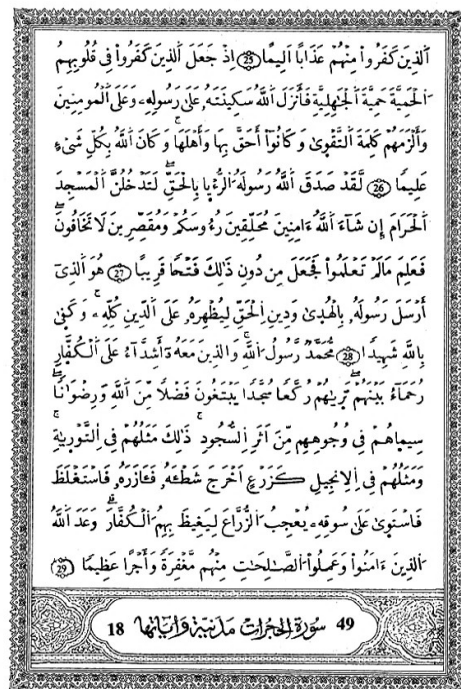 اَلذِينَ كَفَرُواْ مِنْهُمْ عَذَابًا اَلِيمًا 25 اِذْ جَعَلَ اَلذِينَ كَفَرُواْ فِي قُلُوبِهِمُ
اَلْحَمِيَّةَ حَمِيَّةَ اَلْجَٰهِلِيَّةِ فَأَنزَلَ اَللَّهُ سَكِينَتَهُۥ عَلَىٰ رَسُولِهِۦ وَعَلَى اَلْمُومِنِينَ
وَأَلْزَمَهُمْ كَلِمَةَ اَلتَّقْوَىٰ وَكَانُواْ أَحَقَّ بِهَا وَأَهْلَهَا وَكَانَ اَللَّهُ بِكُلِّ شَيْءٍ
عَلِيمًا 26 لَّقَدْ صَدَقَ اَللَّهُ رَسُولَهُ اُلرُّءْيا بِالْحَقِّ لَتَدْخُلُنَّ اَلْمَسْجِدَ
اَلْحَرَامَ إِن شَآءَ اَللَّهُ ءَامِنِينَ مُحَلِّقِينَ رُءُوسَكُمْ وَمُقَصِّرِينَ لَا تَخَافُونَ
فَعَلِمَ مَا لَمْ تَعْلَمُواْ فَجَعَلَ مِن دُونِ ذَٰلِكَ فَتْحًا قَرِيبًا 27 هُوَ اَلذِيٓ
أَرْسَلَ رَسُولَهُۥ بِالْهُدَىٰ وَدِينِ اِلْحَقِّ لِيُظْهِرَهُۥ عَلَى اَلدِّينِ كُلِّهِۦ وَكَفَىٰ
بِاللَّهِ شَهِيدًا 28 مُّحَمَّدٌ رَّسُولُ اُللَّهِ وَالذِينَ مَعَهُۥٓ أَشِدَّآءُ عَلَى اَلْكُفَّارِ
رُحَمَآءُ بَيْنَهُمْ تَرَىٰهُمْ رُكَّعًا سُجَّدًا يَبْتَغُونَ فَضْلًا مِّنَ اَللَّهِ وَرِضْوَانًا
سِيمَاهُمْ فِي وُجُوهِهِم مِّنَ اَثَرِ اِلسُّجُودِ ذَٰلِكَ مَثَلُهُمْ فِي اِلتَّوْرَىٰةِ
وَمَثَلُهُمْ فِي اِلِانجِيلِ كَزَرْعٍ اَخْرَجَ شَطْـَٔهُۥ فَـَٔازَرَهُۥ فَاسْتَغْلَظَ
فَاسْتَوَىٰ عَلَىٰ سُوقِهِۦ يُعْجِبُ اُلزُّرَّاعَ لِيَغِيظَ بِهِمُ اُلْكُفَّارَ وَعَدَ اَللَّهُ
اُلذِينَ ءَامَنُواْ وَعَمِلُواْ اُلصَّٰلِحَٰتِ مِنْهُم مَّغْفِرَةً وَأَجْرًا عَظِيمًا 29
49 سورة الحجرات مدنية وءاياتها 18